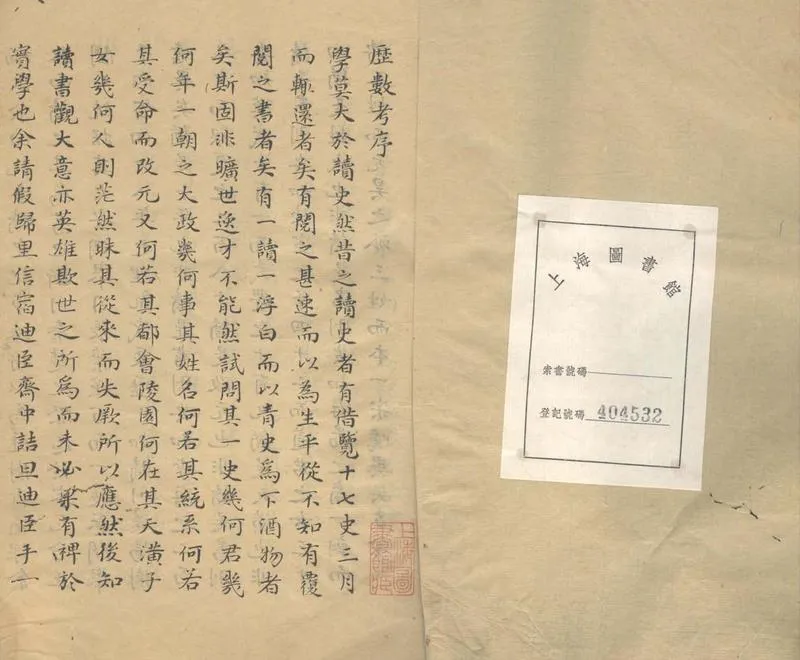 歷數考序
學莫大於讀史然昔之讀史者有借覽十七史三月
而輒還者矣有閱之甚速而以為生平從不知有覆
閱之書者矣有一讀一浮白而以青史為下酒物者
矣斯固非曠世逸才不能然試問其一史幾何君幾
何年一朝之大政幾何事其姓名何若其統系何若
其受命而改元又何若其都會陵園何在其天潢子
女幾何人則茫然昧其從來而失厥所以應然後知
讀書觀大意亦英雄欺世之所為而未必果有裨於
實學也余請假歸里信宿迪臣齋中詰旦迪臣手一
上海圖書館
索書號碼
登記號碼 404532
上海圖書館藏